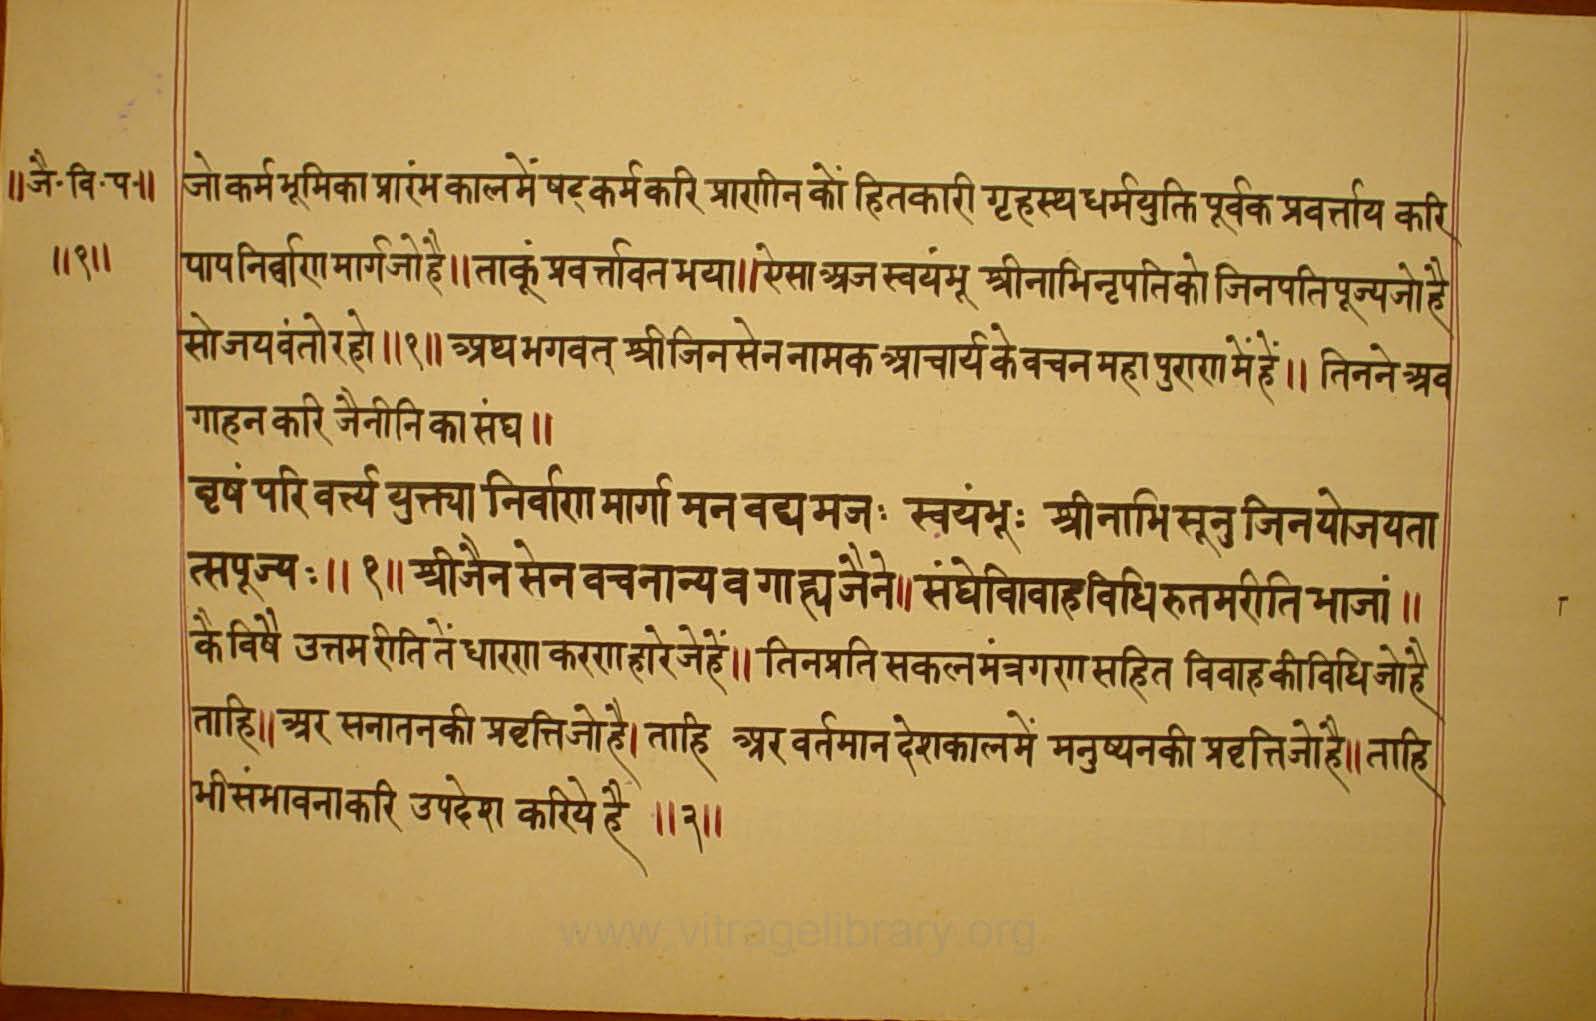 ॥जै·वि·प·॥
॥१॥
जो कर्म भूमिका प्रारंभ कालमें षट् कर्म करि प्राणीन कों हितकारी गृहस्थ धर्मयुक्ति पूर्वक प्रवर्त्ताय करि
पाप निर्वाण मार्ग जो है॥ ताकूं प्रवर्त्तावत भया॥ ऐसा अज स्वयंभू श्रीनाभिनृपति को जिनपति पूज्य जो है
सो जयवंतो रहो॥१॥ अथ भगवत् श्री जिन सेन नामक आचार्य के वचन महा पुराण में हें॥ तिनने अव
गाहन करि जैनीनि का संघ॥
वृषं परि वर्त्त्य युक्त्या निर्वाण मार्गा मन वद्य मजः स्वयंभूः श्रीनाभि सूनु जिन योजयता
त्सपूज्यः॥ १॥ श्रीजैन सेन वचनान्य व गाह्य जैने॥ संघेविवाहविधि रुतमरीति भाजां॥
कै विषै उत्तम रीति तें धारण करण हारे जे हें॥ तिनप्रति सकल मंत्रगण सहित विवाह की विधि जो है
ताहि॥ अर सनातनकी प्रवृत्ति जो है। ताहि अर वर्तमान देशकालमें मनुष्यनकी प्रवृत्ति जो है॥ ताहि
भी संभावना करि उपदेश करिये है ॥२॥
www.vitragelibrary.org